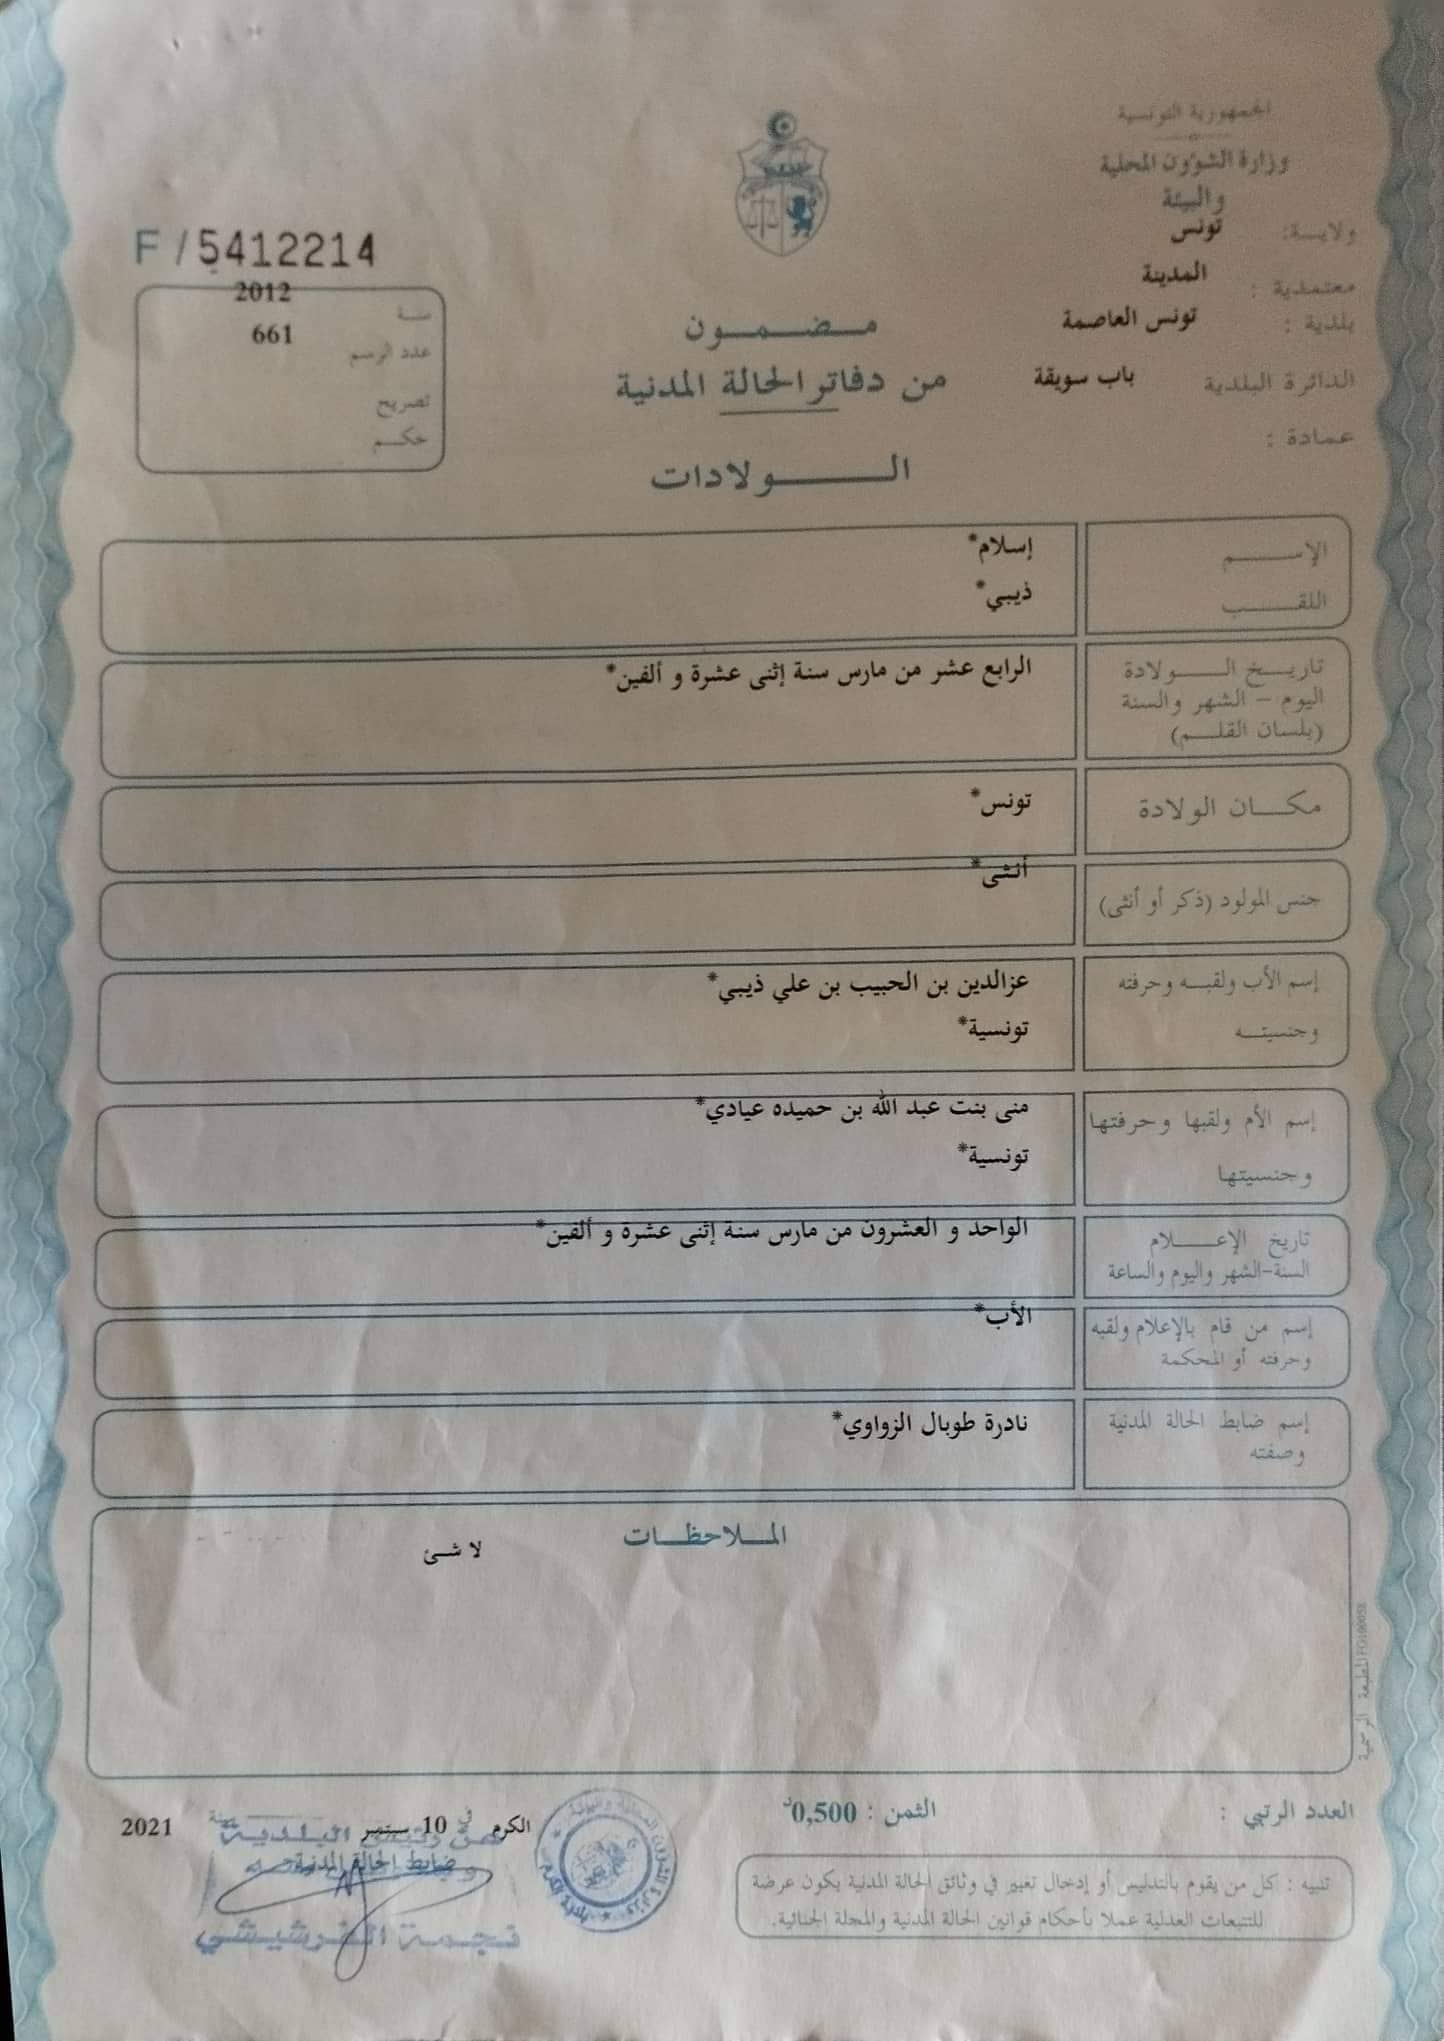 الجمهورية التونسية
وزارة الشؤون المحلية
والبيئة
ولايـة: تونس
معتمدية : المدينة
بلدية : تونس العاصمة
الدائرة البلدية باب سويقة
عمادة :
F / 5412214
سنة 2012
عدد الرسم 661
تصريح
حكم
مضمون
من دفاتر الحالة المدنية
الولادات
الإسم إسلام*
اللقب ذيبي*
تاريخ الولادة الرابع عشر من مارس سنة إثنى عشرة و ألفين*
اليوم - الشهر والسنة
(بلسان القلم)
مكان الولادة تونس*
جنس المولود (ذكر أو أنثى) أنثى*
إسم الأب ولقبه وحرفته عزالدين بن الحبيب بن علي ذيبي*
وجنسيته تونسية*
إسم الأم ولقبها وحرفتها منى بنت عبد الله بن حميده عيادي*
وجنسيتها تونسية*
تاريخ الإعلام الواحد و العشرون من مارس سنة إثنى عشرة و ألفين*
السنة-الشهر واليوم والساعة
إسم من قام بالإعلام ولقبه الأب*
وحرفته أو المحكمة
إسم ضابط الحالة المدنية نادرة طوبال الزواوي*
وصفته
الملاحظات
لا شئ
العدد الرتبي :
الثمن : 0,500د
الكرم في 10 سبتمبر سنة 2021
عن رئيس البلدية
ضابط الحالة المدنية
تنبيه : كل من يقوم بالتدليس أو إدخال تغيير في وثائق الحالة المدنية يكون عرضة
للتتبعات العدلية عملا بأحكام قوانين الحالة المدنية والمجلة الجنائية.